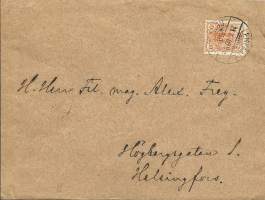 H. Herr Fil. mag. Alex. Frey.
Högbergsgatan 1.
Helsingfors.